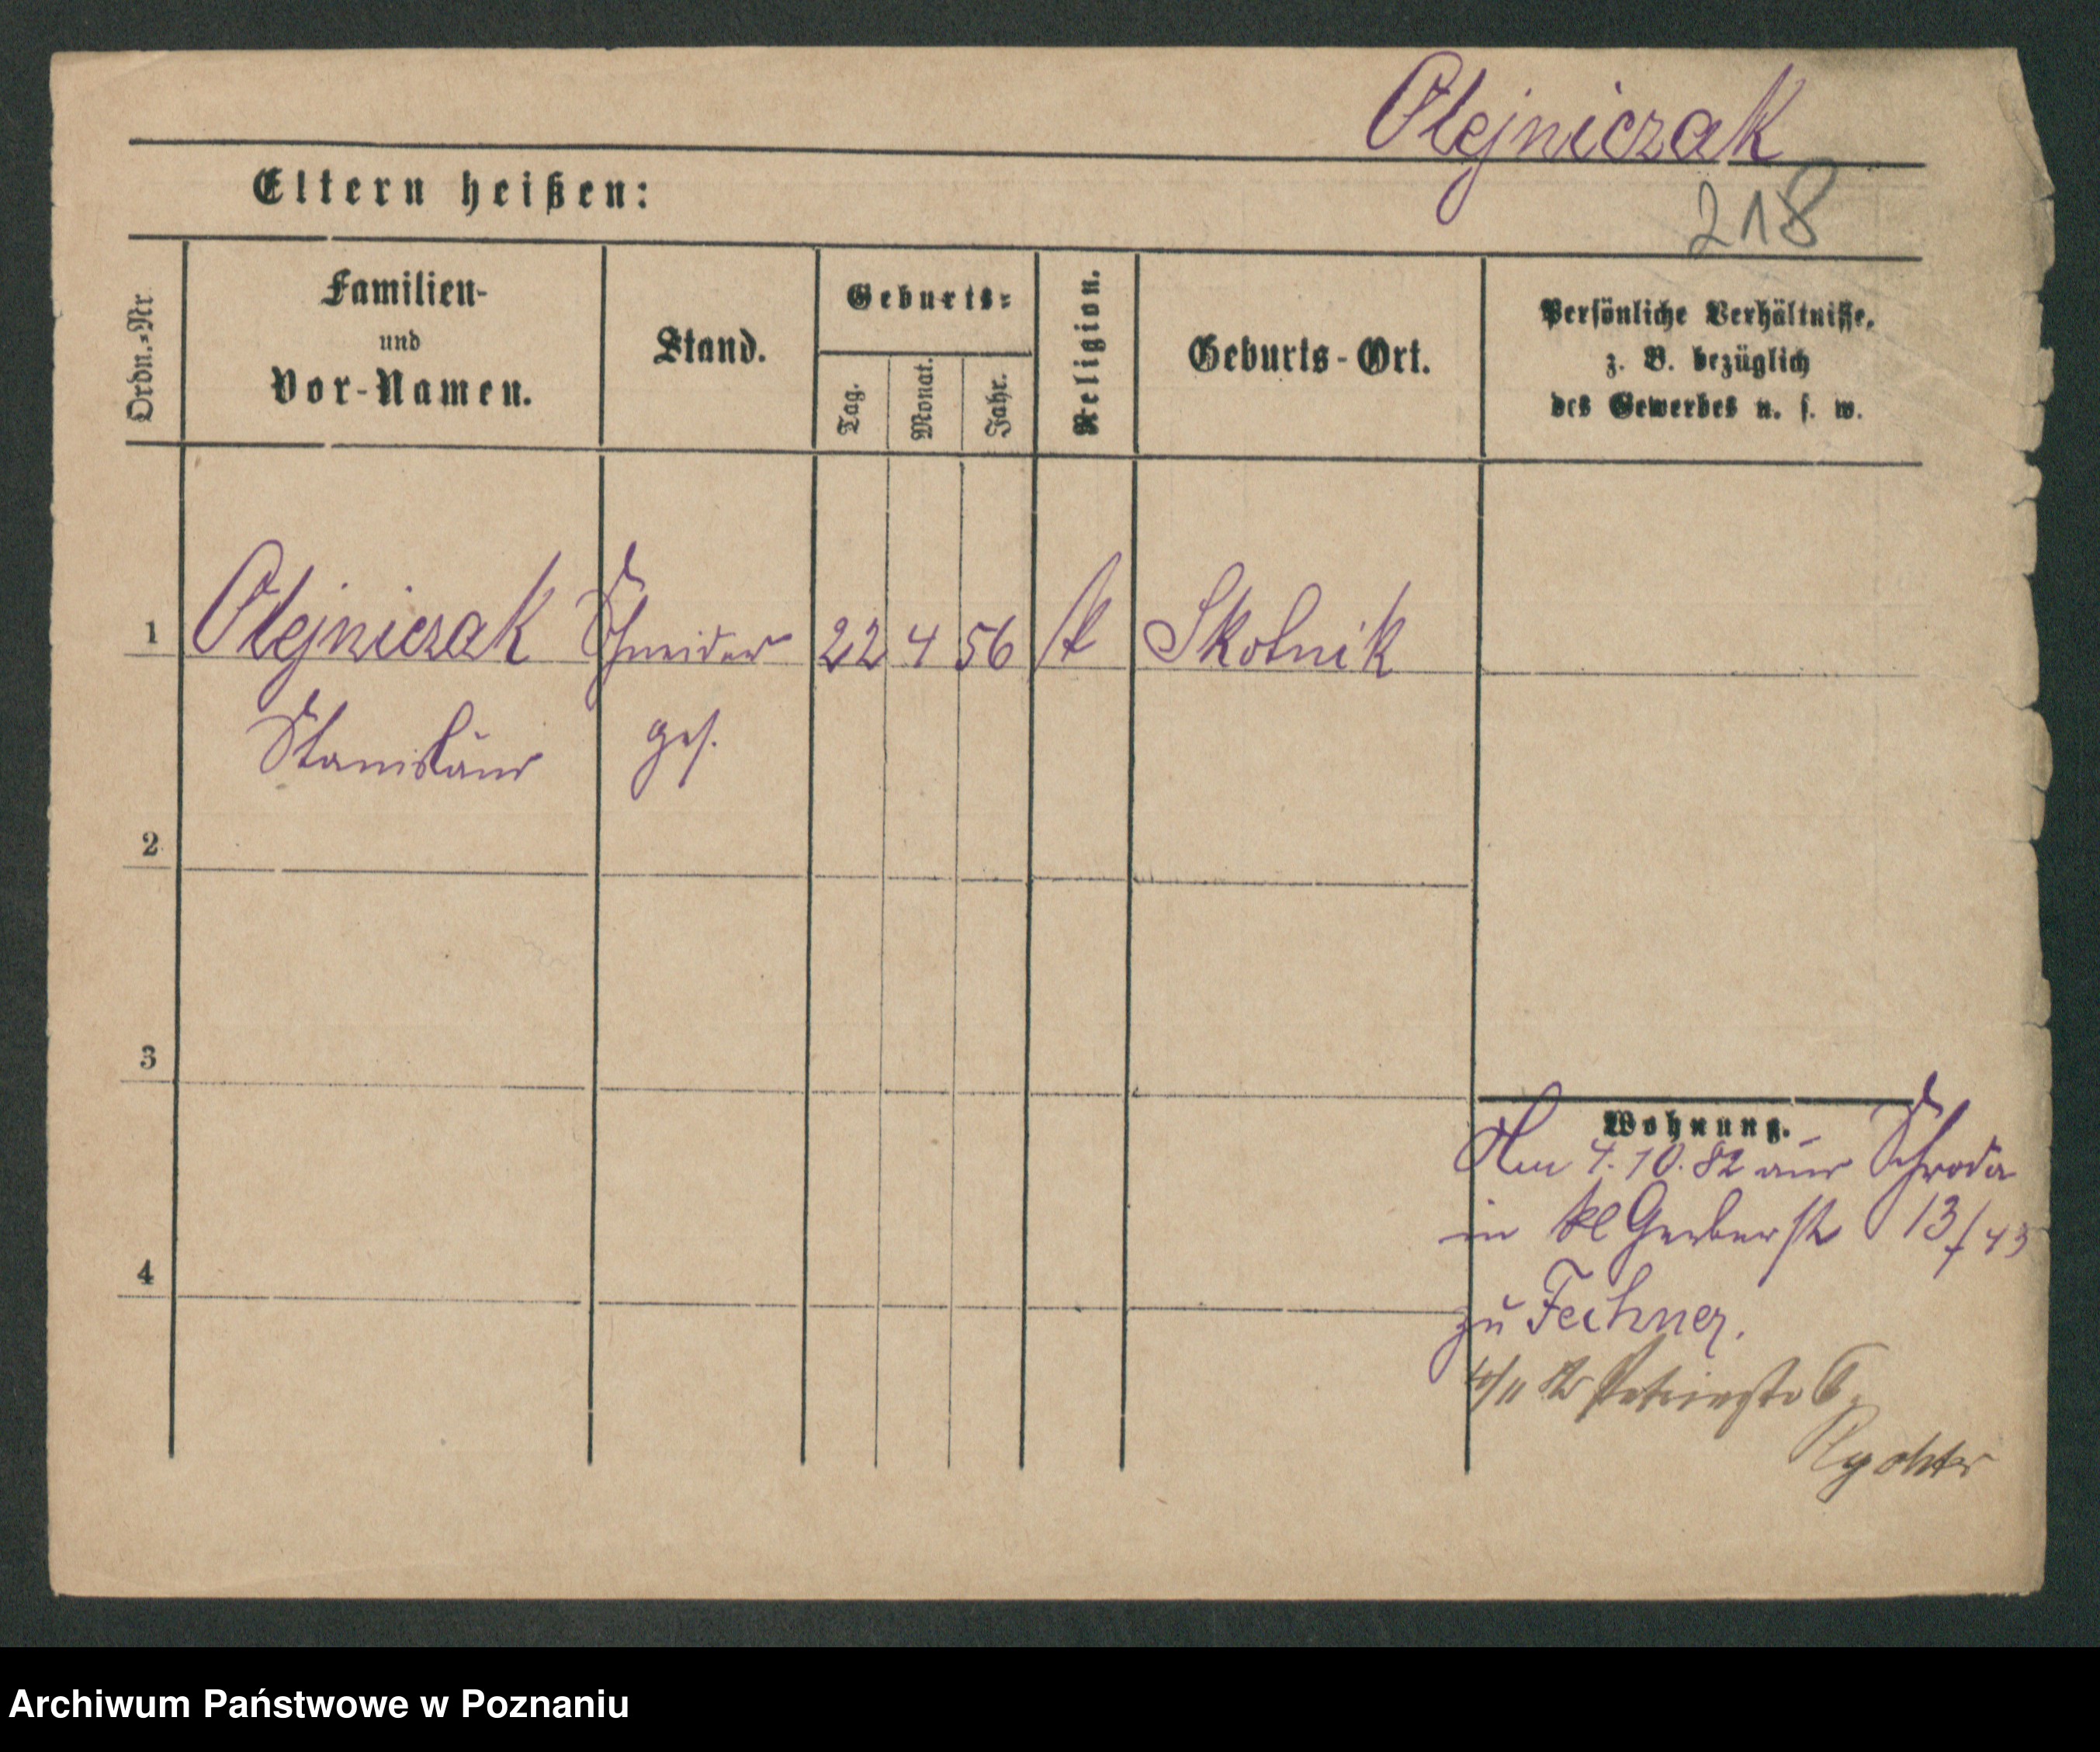 Olejniczak
Eltern heißen:
218
Ordn.-Nr.
Familien-
und
Vor-Namen.
Stand.
Geburts-
Tag.
Monat.
Jahr.
Religion.
Geburts-Ort.
Persönliche Verhältnisse,
z. B. bezüglich
des Gewerbes u. s. w.
1 Olejniczak Schneider 22 4 56 k Skotnik
Stanislaus ges.
2
3
4
Wohnung.
Am 4.10.82 aus Schroda
in kl Gerberstr 13/
zu Fechner.
Petristr 6
Rychter
Archiwum Państwowe w Poznaniu